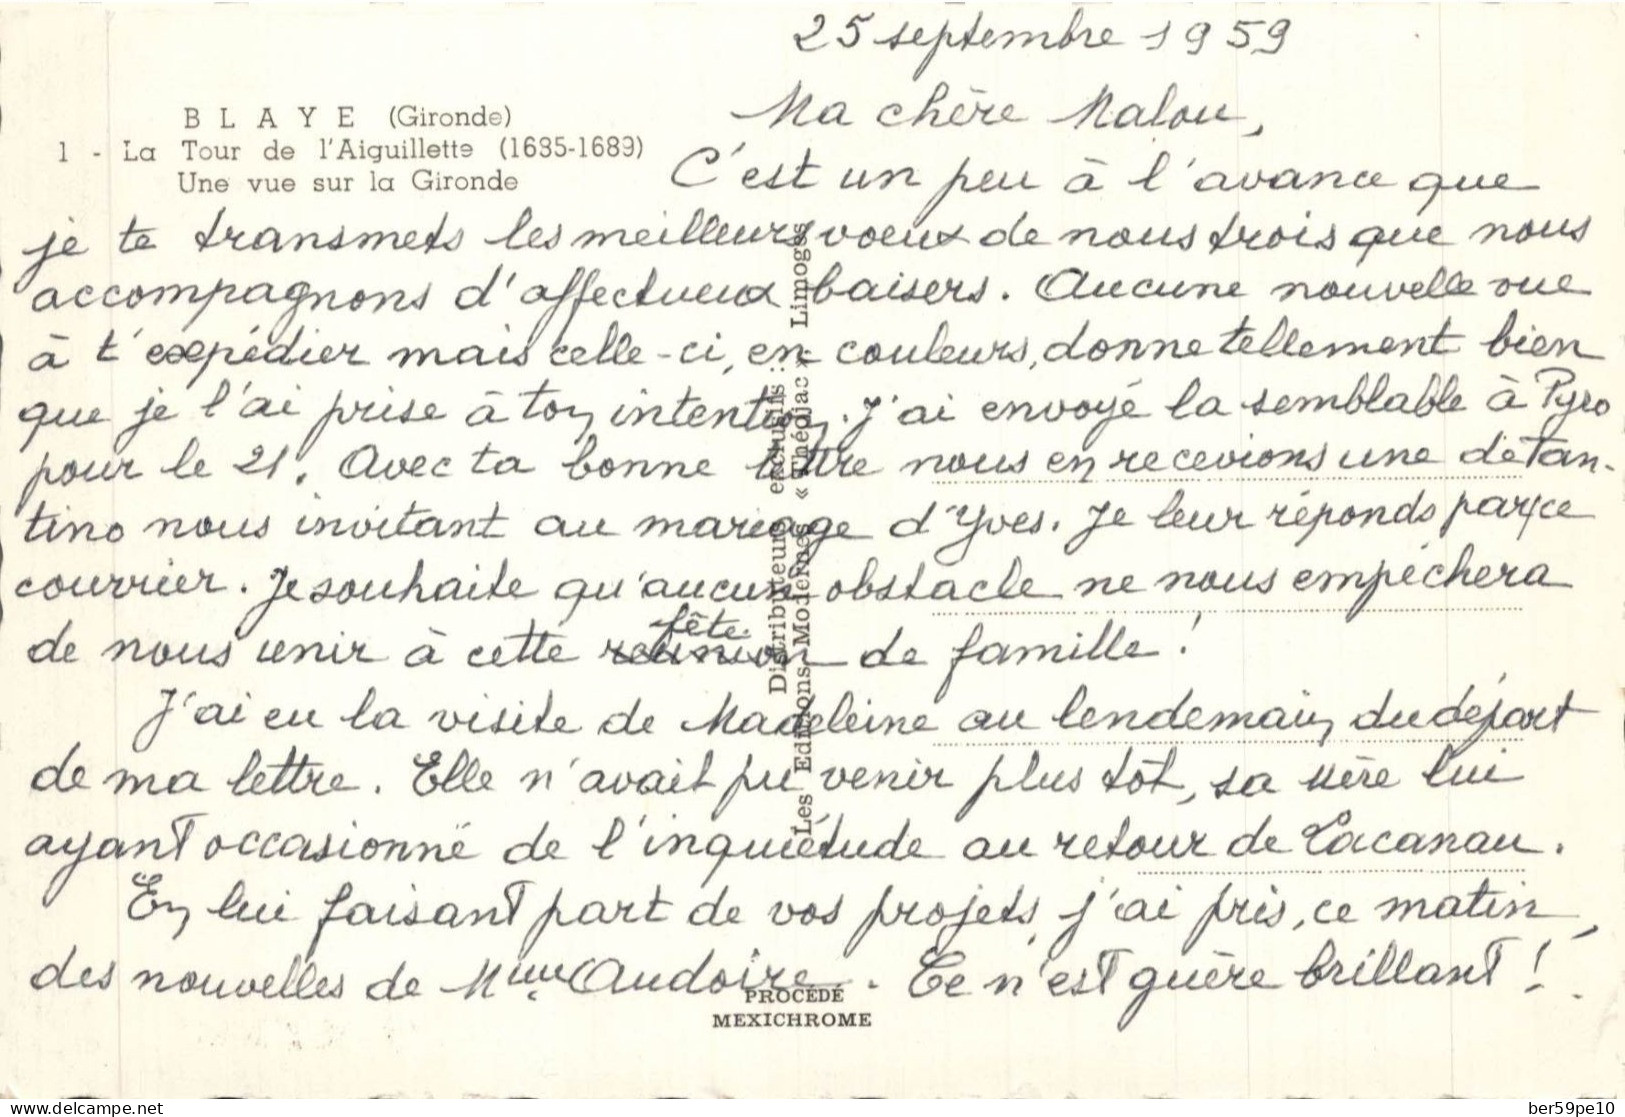 25 septembre 1959
Ma chère Malou,
BLAYE (Gironde)
1 - La Tour de l'Aiguillette (1685-1689)
Une vue sur la Gironde
C'est un peu à l'avance que
je te transmets les meilleurs voeux de nous trois que nous
accompagnons d'affectueux baisers. Aucune nouvelle vue
à t'expédier mais celle-ci, en couleurs, donne tellement bien
que je l'ai prise à ton intention. J'ai envoyé la semblable à Pyro
pour le 21. Avec ta bonne lettre nous en recevions une de Tan-
tino nous invitant au mariage d'Yves. Je leur réponds par ce
courrier. Je souhaite qu'aucun obstacle ne nous empêchera
de nous unir à cette réunion fête de famille !
J'ai eu la visite de Madeleine au lendemain du départ
de ma lettre. Elle n'avait pu venir plus tôt, sa mère lui
ayant occasionné de l'inquiétude au retour de Lacanau.
En lui faisant part de vos projets, j'ai pris, ce matin,
des nouvelles de Mme Audoire. Ce n'est guère brillant !
Distributeurs exclusifs :
Les Editions Modernes « Théojac » Limoges
PROCÉDÉ
MEXICHROME
delcampe.net
ber59pe10